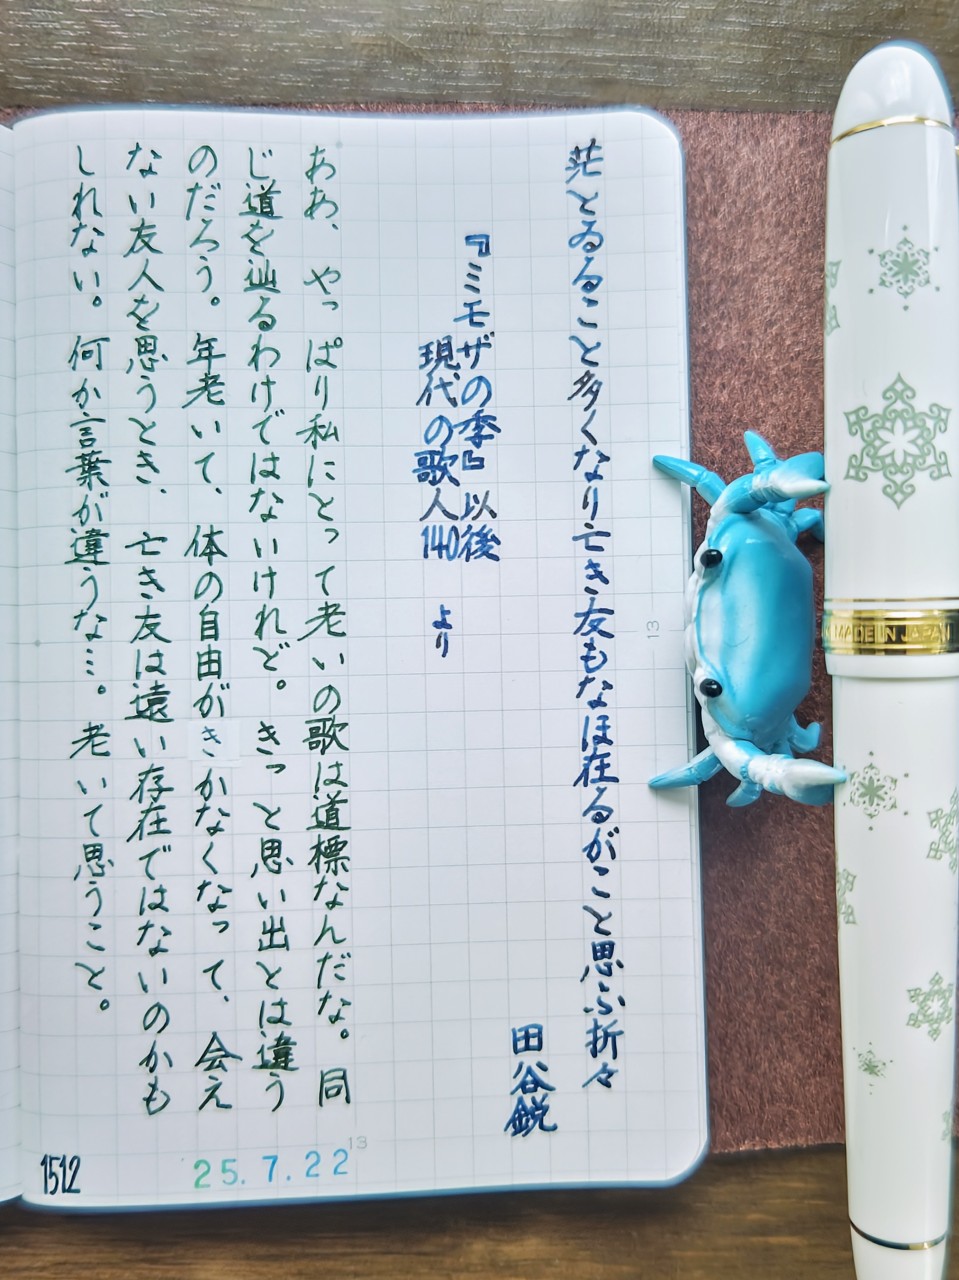 茫とゐること多くなり亡き友もなほ在るがこと思ふ折々
田谷鋭
『ミモザの季』以後
現代の歌人140 より
ああ、やっぱり私にとって老いの歌は道標なんだな。同
じ道を辿るわけではないけれど。きっと思い出とは違う
のだろう。年老いて、体の自由がきかなくなって、会え
ない友人を思うとき、亡き友は遠い存在ではないのかも
しれない。何か言葉が違うな…。老いて思うこと。
1512
25.7.22
13
13
MADE IN JAPAN